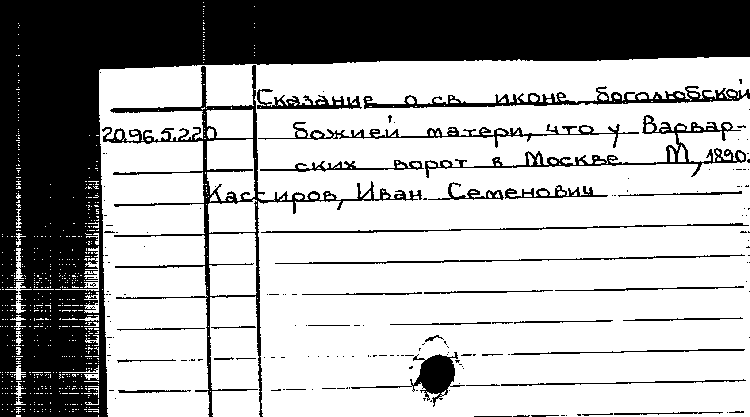 Сказание о св. иконе боголюбской
20.96.5.220 божией матери, что у Варвар-
ских ворот в Москве. М, 1890.
Кассиров, Иван Семенович